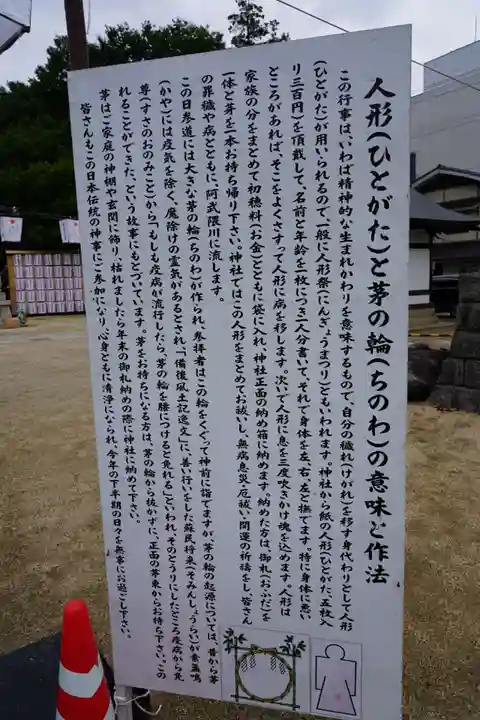 人形(ひとがた)と茅の輪(ちのわ)の意味と作法
この行事は、いわば精神的な生まれかわりを意味するもので、自分の穢れ(けがれ)を移す身代わりとして人形
(ひとがた)が用いられるので、一般に人形祭(にんぎょうまつり)ともいわれます。神社から紙の人形(ひとがた、五枚入
り三百円)を頂戴して、名前と年齢を一枚につき一人分書いて、それで身体を左右左と撫でます。特に身体に悪い
ところがあれば、そこをよくさすって人形に病を移します。次いで人形に息を三度吹きかけ魂を込めます。人形は
家族の分をまとめて初穂料(お金)とともに袋に入れ、神社正面の納め箱に納めます。納めた方は、御札(おふだ)を
一体と茅を一本お持ち帰り下さい。神社ではこの人形をまとめてお祓いし、無病息災・厄祓い・開運の祈祷をし、皆さん
の罪穢や病とともに、阿武隈川に流します。
この日参道には大きな茅の輪(ちのわ)が作られ、参拝者はこの輪をくぐって神前に詣でますが、茅の輪の起源については、昔から茅
(かや)には疫気を除く、魔除けの霊気があるとされ「備後風土記逸文」に、善い行いをした蘇民将来(そみんしょうらい)が素盞鳴
尊(すさのおのみこと)から「もしも疫病が流行したら、茅の輪を腰につけると免れる」といわれ、そのとうりにしたところ疫病から免
れることができた、という故事にもとづいています。茅をお持ちになる方は、茅の輪から抜かずに、正面の茅束からお持ち下さい。この
茅はご家庭の神棚や玄関に飾り、枯れましたら年末の御札納めの際に神社に納めて下さい。
皆さんもこの日本伝統の神事にご参加になり、心身ともに清浄になられ、今年の下半期の日々を無事にお過ごし下さい。